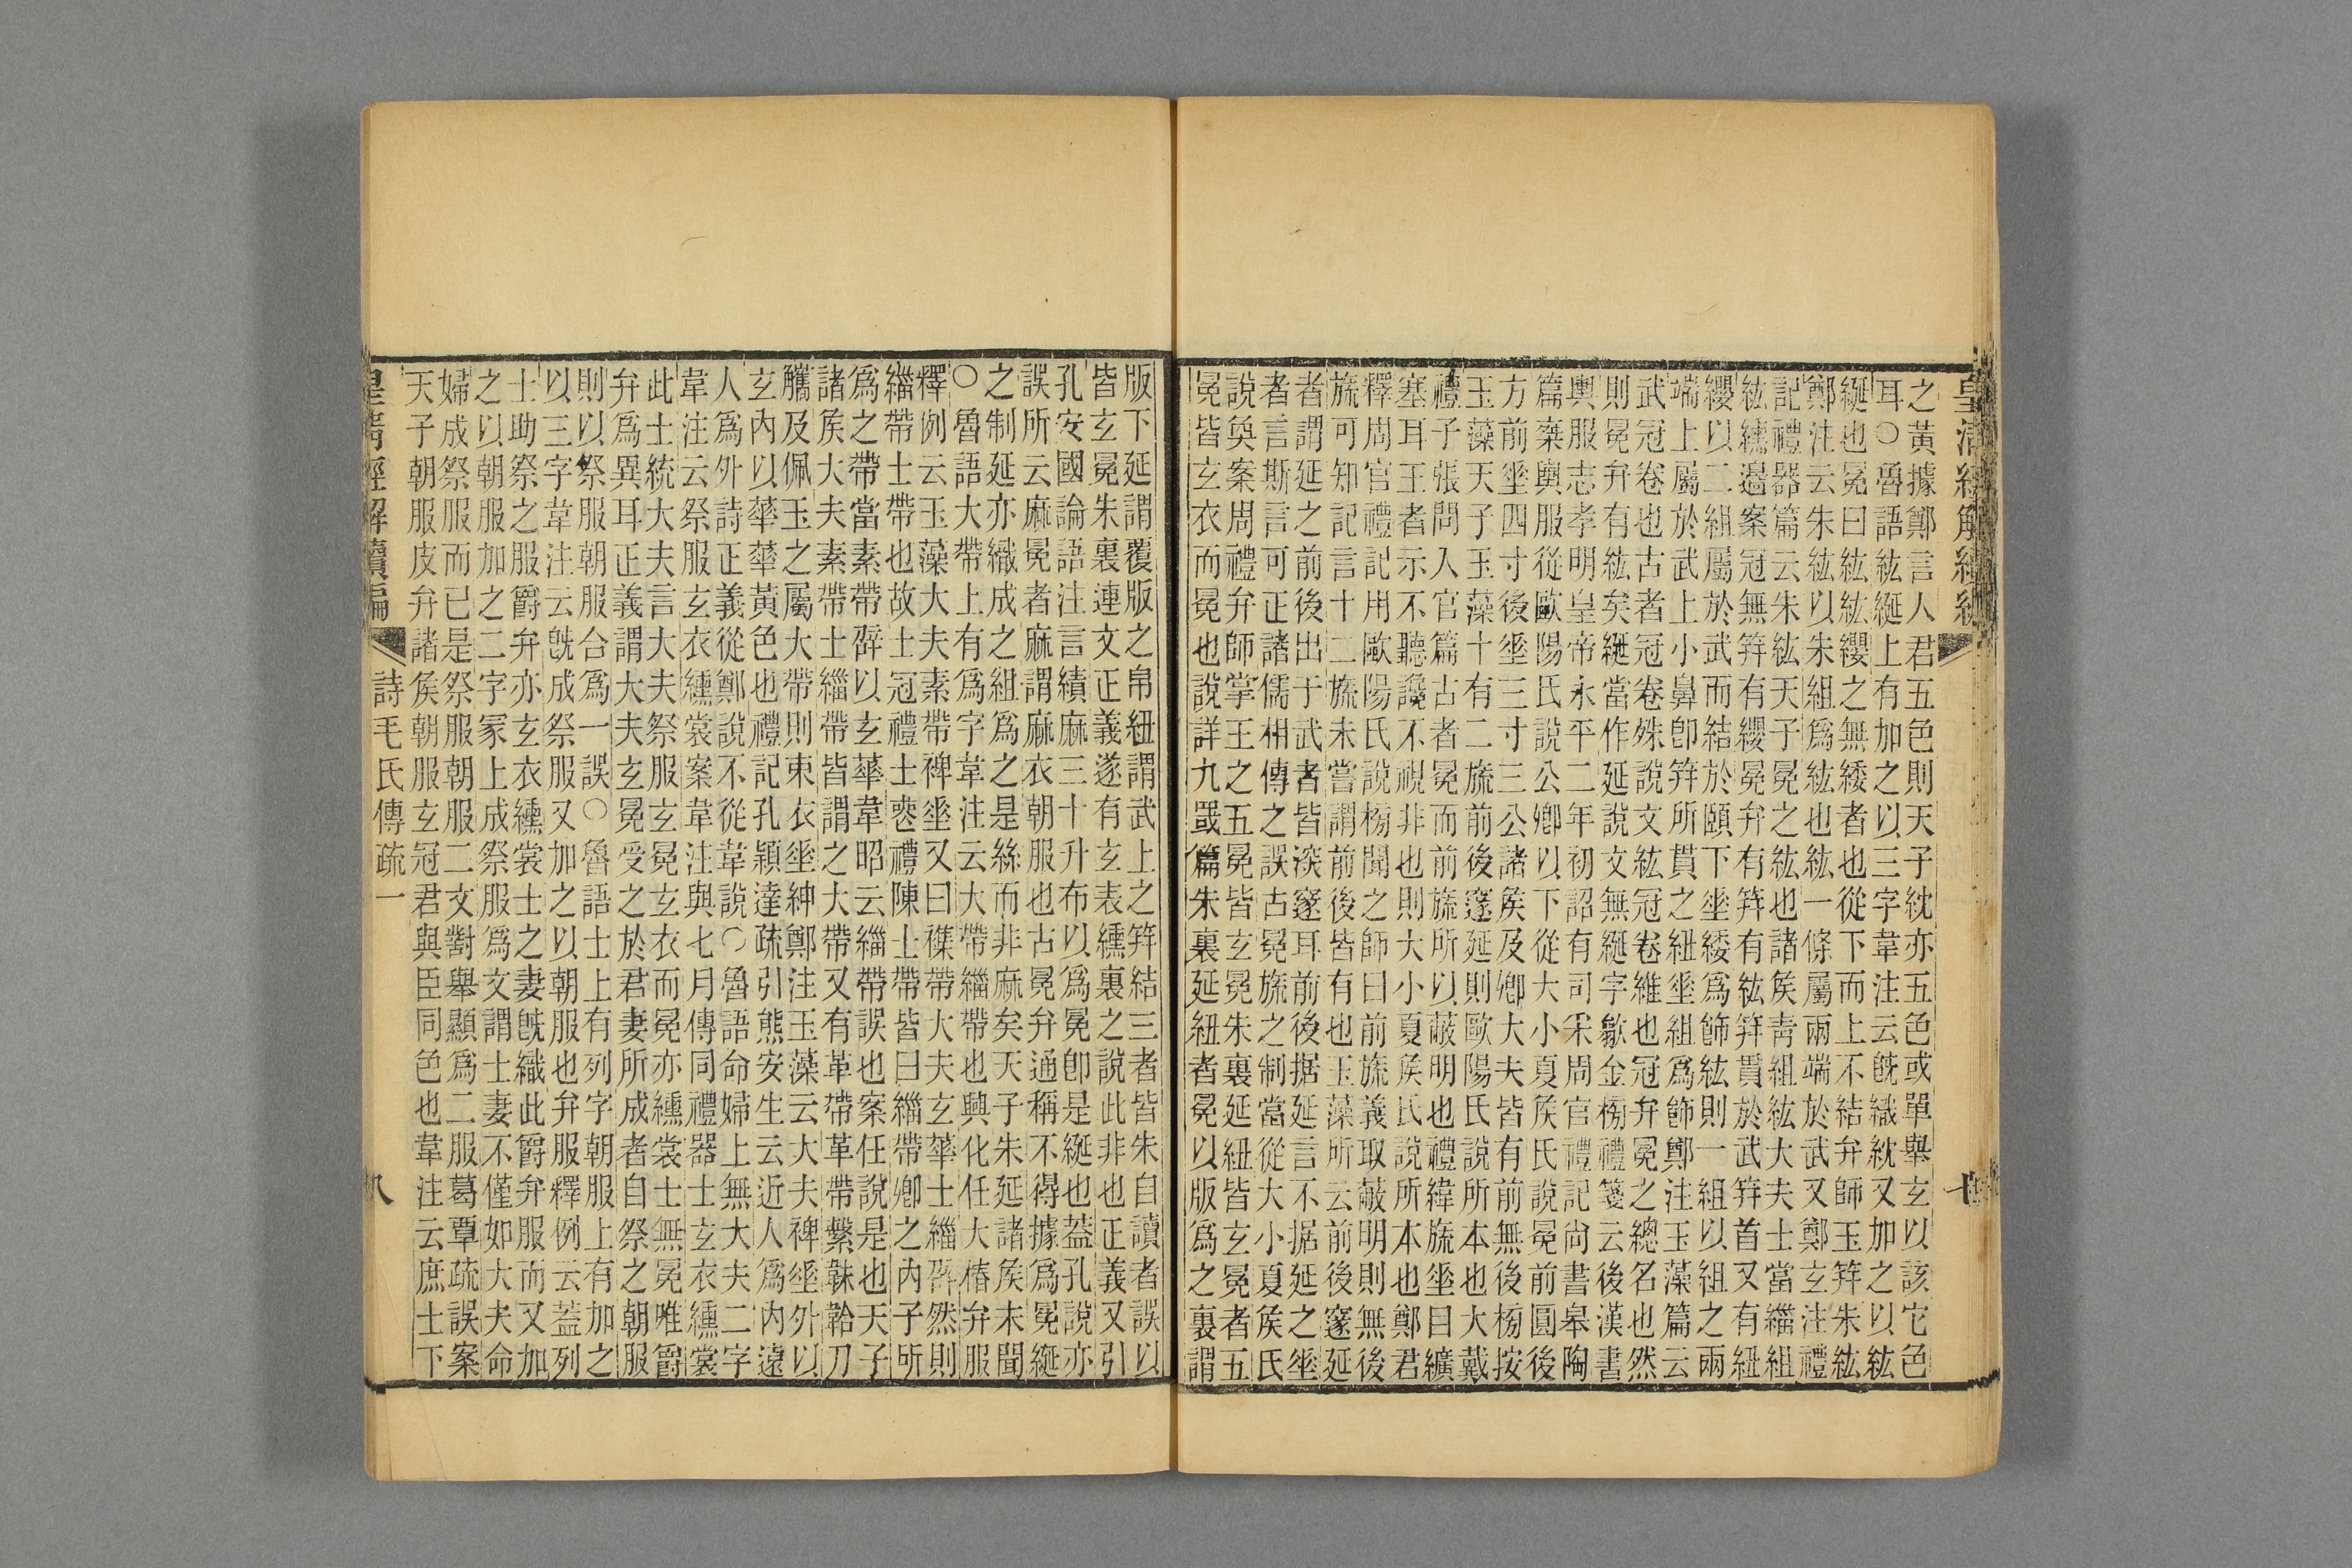 之黃據鄭言人君五色則天子紞亦五色或單舉玄以該它色
耳○魯語紘綖上有加之以三字韋注云旣織紞又加之以紘
綖也冕曰紘紘纓之無緌者也從下而上不結弁師玉笄朱紘
鄭注云朱紘以朱組爲紘也紘一條屬兩端於武又鄭玄注禮
記禮器篇云朱紘天子冕之紘也諸矦靑組紘大夫士當緇組
紘纁邉案冠無笄有纓冕弁有笄有紘笄貫於武笄首又有紐
纓以二組屬於武而結於頤下垂緌爲飾紘則一組以組之兩
端上屬於武上小鼻卽笄所貫之紐垂組爲飾鄭注玉藻篇云
武冠卷也古者冠卷殊說文紘冠卷維也冠弁冕之總名也然
則冕弁有紘矣綖當作延說文無綖字歙金榜禮箋云後漢書
輿服志孝明皇帝永平二年初詔有司采周官禮記尙書皋陶
篇棄輿服從歐陽氏說公卿以下從大小夏矦氏說冕前圓後
方前垂四寸後垂三寸三公諸矦及卿大夫皆有前無後榜按
玉藻天子玉藻十有二旒前後邃延則歐陽氏說所本也大戴
禮子張問入官篇古者冕而前旒所以蔽明也禮緯旒垂曰纊
塞耳王者示不聽讒不視非也則大小夏矦氏說所本也鄭君
釋周官禮記用歐陽氏說榜聞之師曰前旒義取蔽明則無後
旒可知記言十二旒未嘗謂前後皆有也玉藻所云前後邃延
者謂延之前後出于武者皆深邃耳前後据延言不据延之垂
者言斯言可正諸儒相傳之誤古冕旒之制當從大小夏矦氏
說奐案周禮弁師掌王之五冕皆玄冕朱裏延紐皆玄冕者五
冕皆玄衣而冕也說詳九罭篇朱裏延紐者冕以版爲之裏謂
版下延謂覆版之帛紐謂武上之笄結三者皆朱自讀者誤以
皆玄冕朱裏連文正義遂有玄表纁裏之說此非也正義又引
孔安國論語注言績麻三十升布以爲冕卽是綖也蓋孔說亦
誤所云麻冕者麻謂麻衣朝服也古冕弁通稱不得據爲冕綖
之制延亦織成之組爲之是絲而非麻矣天子朱延諸矦未聞
○魯語大帶上有爲字韋注云大帶緇帶也興化任大椿弁服
釋例云玉藻大夫素帶裨垂又曰襍帶大夫玄華士緇辟然則
緇帶士帶也故士冠禮士喪禮陳士帶皆曰緇帶卿之內子所
爲之帶當素帶辟以玄華韋昭云緇帶誤也案任說是也天子
諸矦大夫素帶士緇帶皆謂之大帶又有革帶革帶繫韎韐刀
觿及佩玉之屬大帶則束衣垂紳鄭注玉藻云大夫裨垂外以
玄內以華華黃色也禮記孔穎達疏引熊安生云近人爲內遠
人爲外詩正義從鄭說不從韋說○魯語命婦上無大夫二字
韋注云祭服玄衣纁裳案韋注與七月傳同禮器士玄衣纁裳
此士統大夫言大夫祭服玄冕玄衣而冕亦纁裳士無冕唯爵
弁爲異耳正義謂大夫玄冕受之於君妻所成者自祭之朝服
則以祭服朝服合爲一誤○魯語士上有列字朝服上有加之
以三字韋注云旣成祭服又加之以朝服也弁服釋例云蓋列
士助祭之服爵弁亦玄衣纁裳士之妻旣織此爵弁服而又加
之以朝服加之二字冡上成祭服爲文謂士妻不僅如大夫命
婦成祭服而已是祭服朝服二文對舉顯爲二服葛覃疏誤案
天子朝服皮弁諸矦朝服玄冠君與臣同色也韋注云庶士下
詩毛氏傳疏一